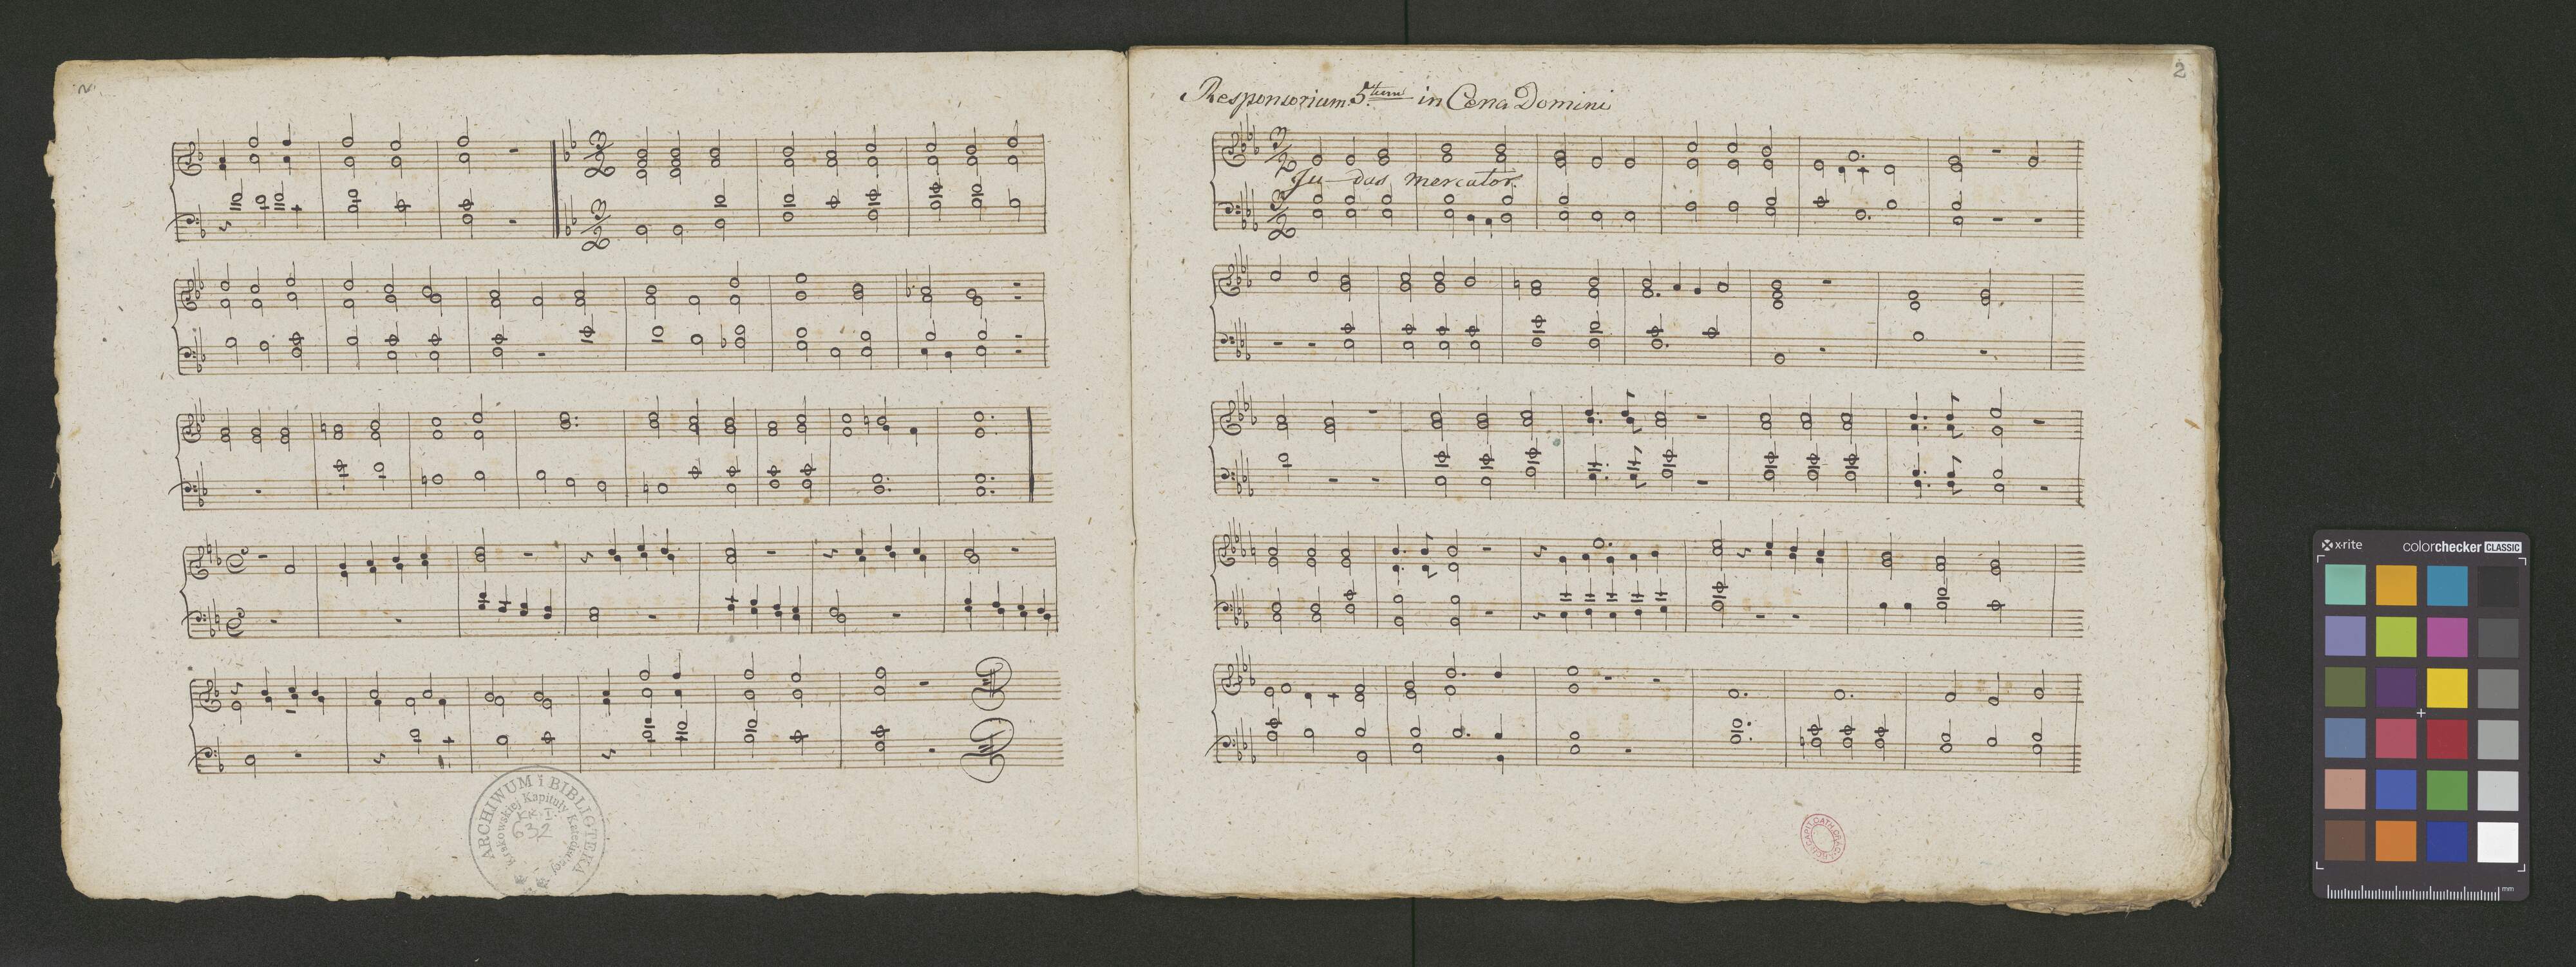 2
Responsorium 5tum in Cena Domini
Ju-das mercator
ARCHIWUM i BIBLIOTEKA
Krakowskiej Kapituły Katedralnej
632
x-rite
colorchecker CLASSIC
mm